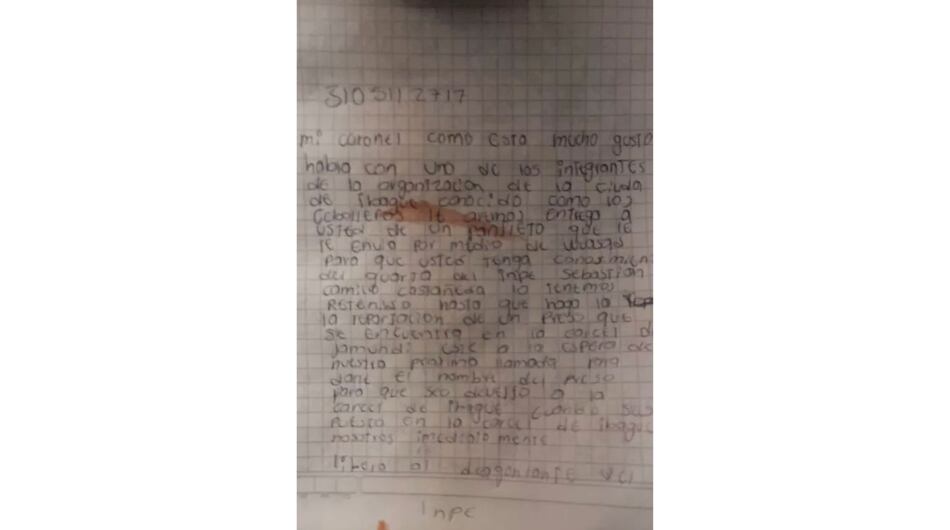 310 311 2717
mi coronel como esta mucho gusto
habla con uno de los integrantes
de la organizacion de la ciuda
de ibague conocido como los
Ceballeros le asemos entrega a
usted de un panfleto que le
se envia por medio de
para que usted tenga
del quarto del inpe Sebastian
camilo castañeda lo tenemos
RETENIDO hasta que haga la
la reportacion de un preso que
se encuentra en la carcel d
jamundi este a la espera de
nuestra proxima llamada para
darle el nombre del preso
para que sea devuelto a la
carcel de ibague cuando sea
puesto en la carcel de ibague
nosotros imediatamente
libera al dragoniante del
inpe